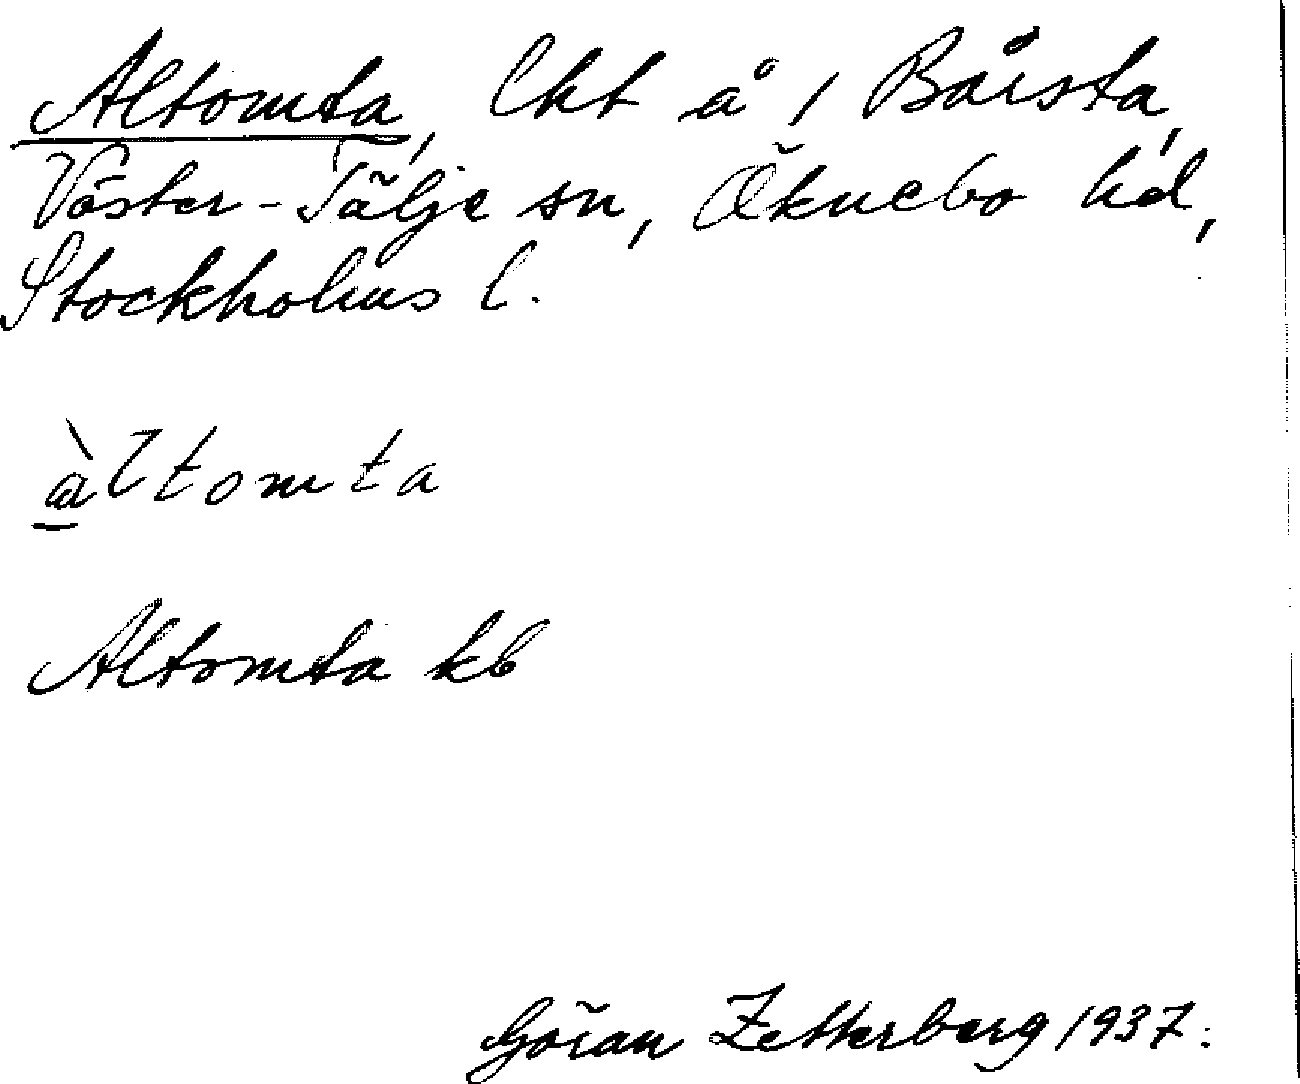 Altomta, lht å 1 Bårsta,
Väster-Tälje sn, Öknebo hd,
Stockholms l.
àltomta
Altomta kb
Göran Zetterberg 1937.